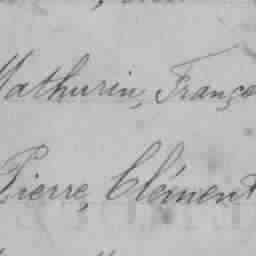 Mathurin, Franço
Pierre, Clément